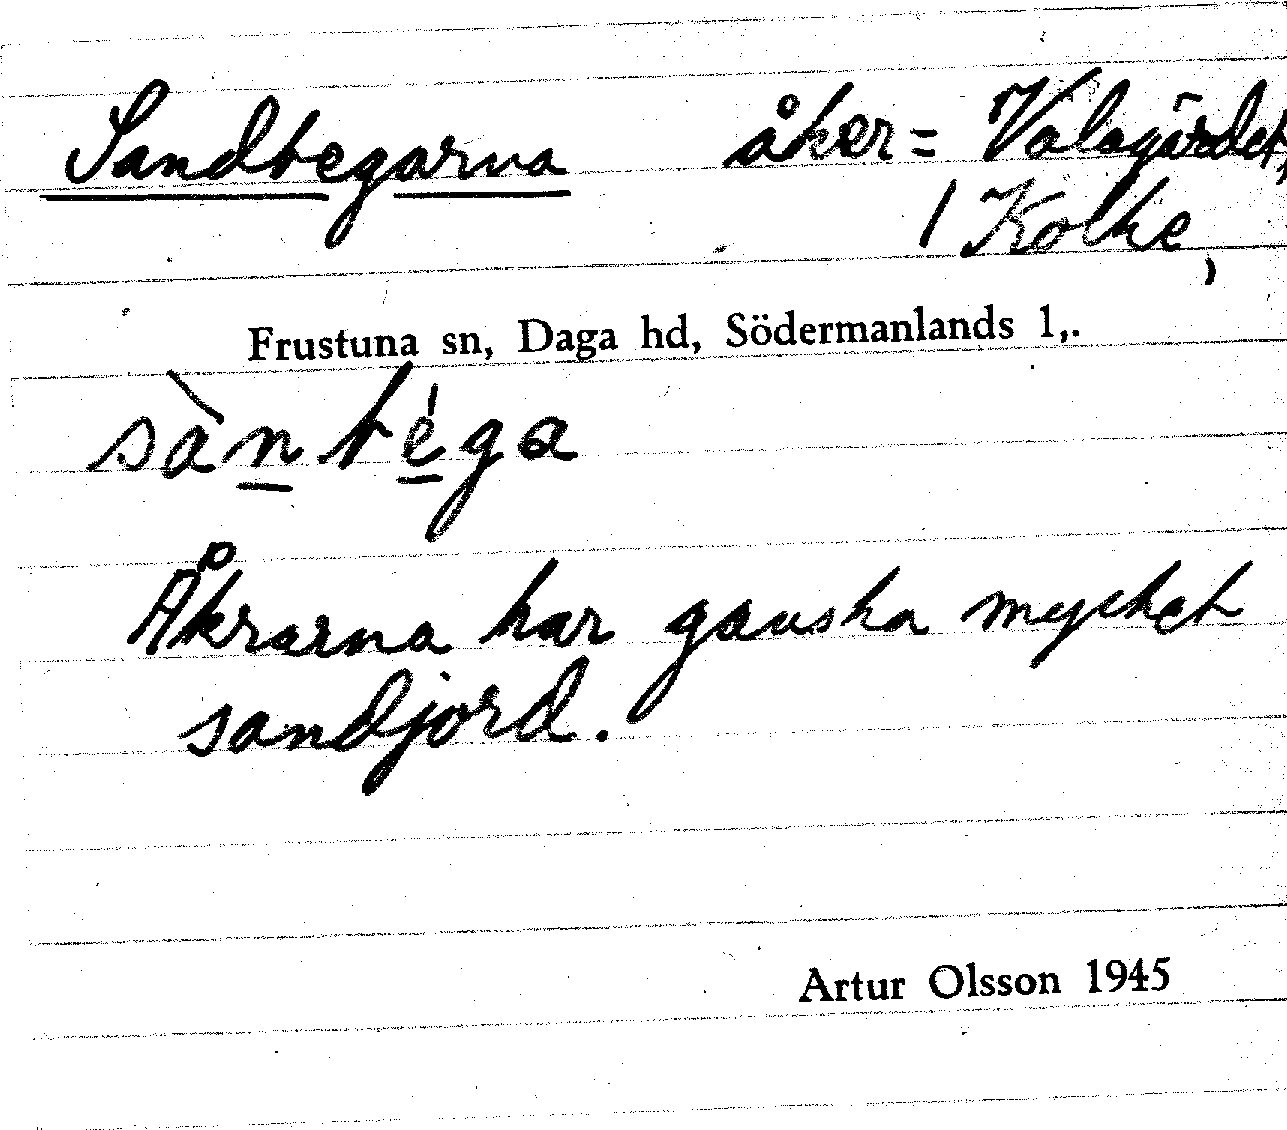 Sandtegarna åker = Valagärdet,
/ Kolke,
Frustuna sn, Daga hd, Södermanlands l,.
sàn téga
Åkrarna har ganska mycket
sandjord.
Artur Olsson 1945